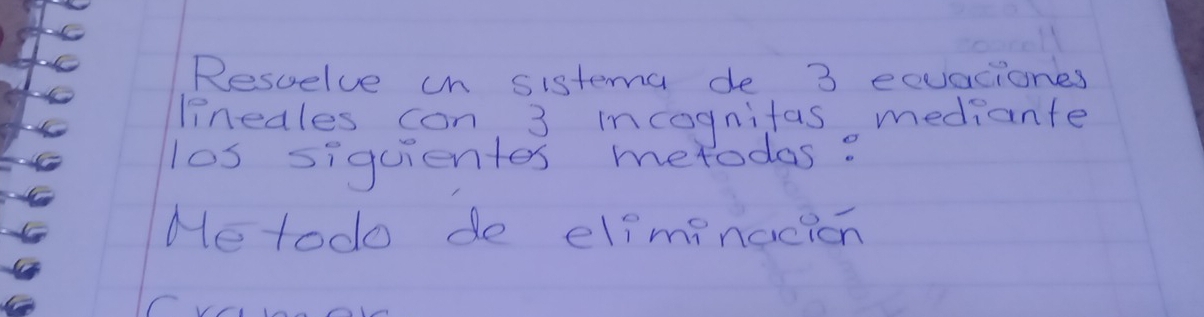 Resuelve un sistema de 3 ecuaciones
lineales con 3 incognitas mediante
los siguientes metodos:
Metodo de eliminación